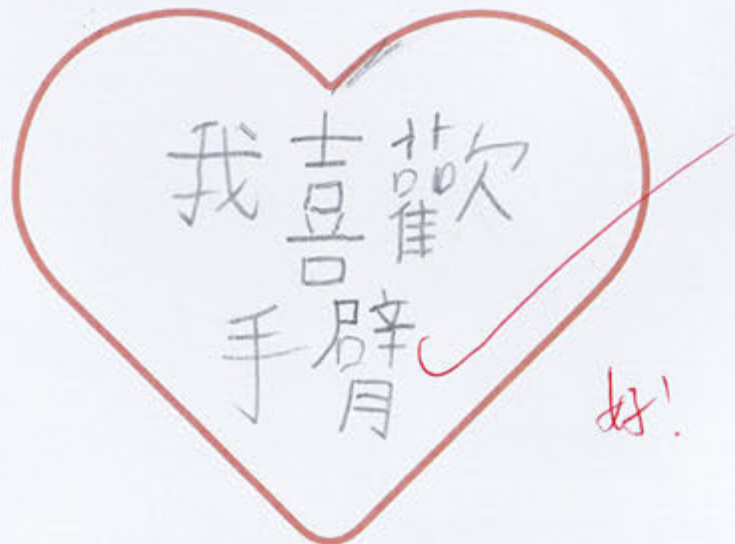 我喜歡
手臂
好!